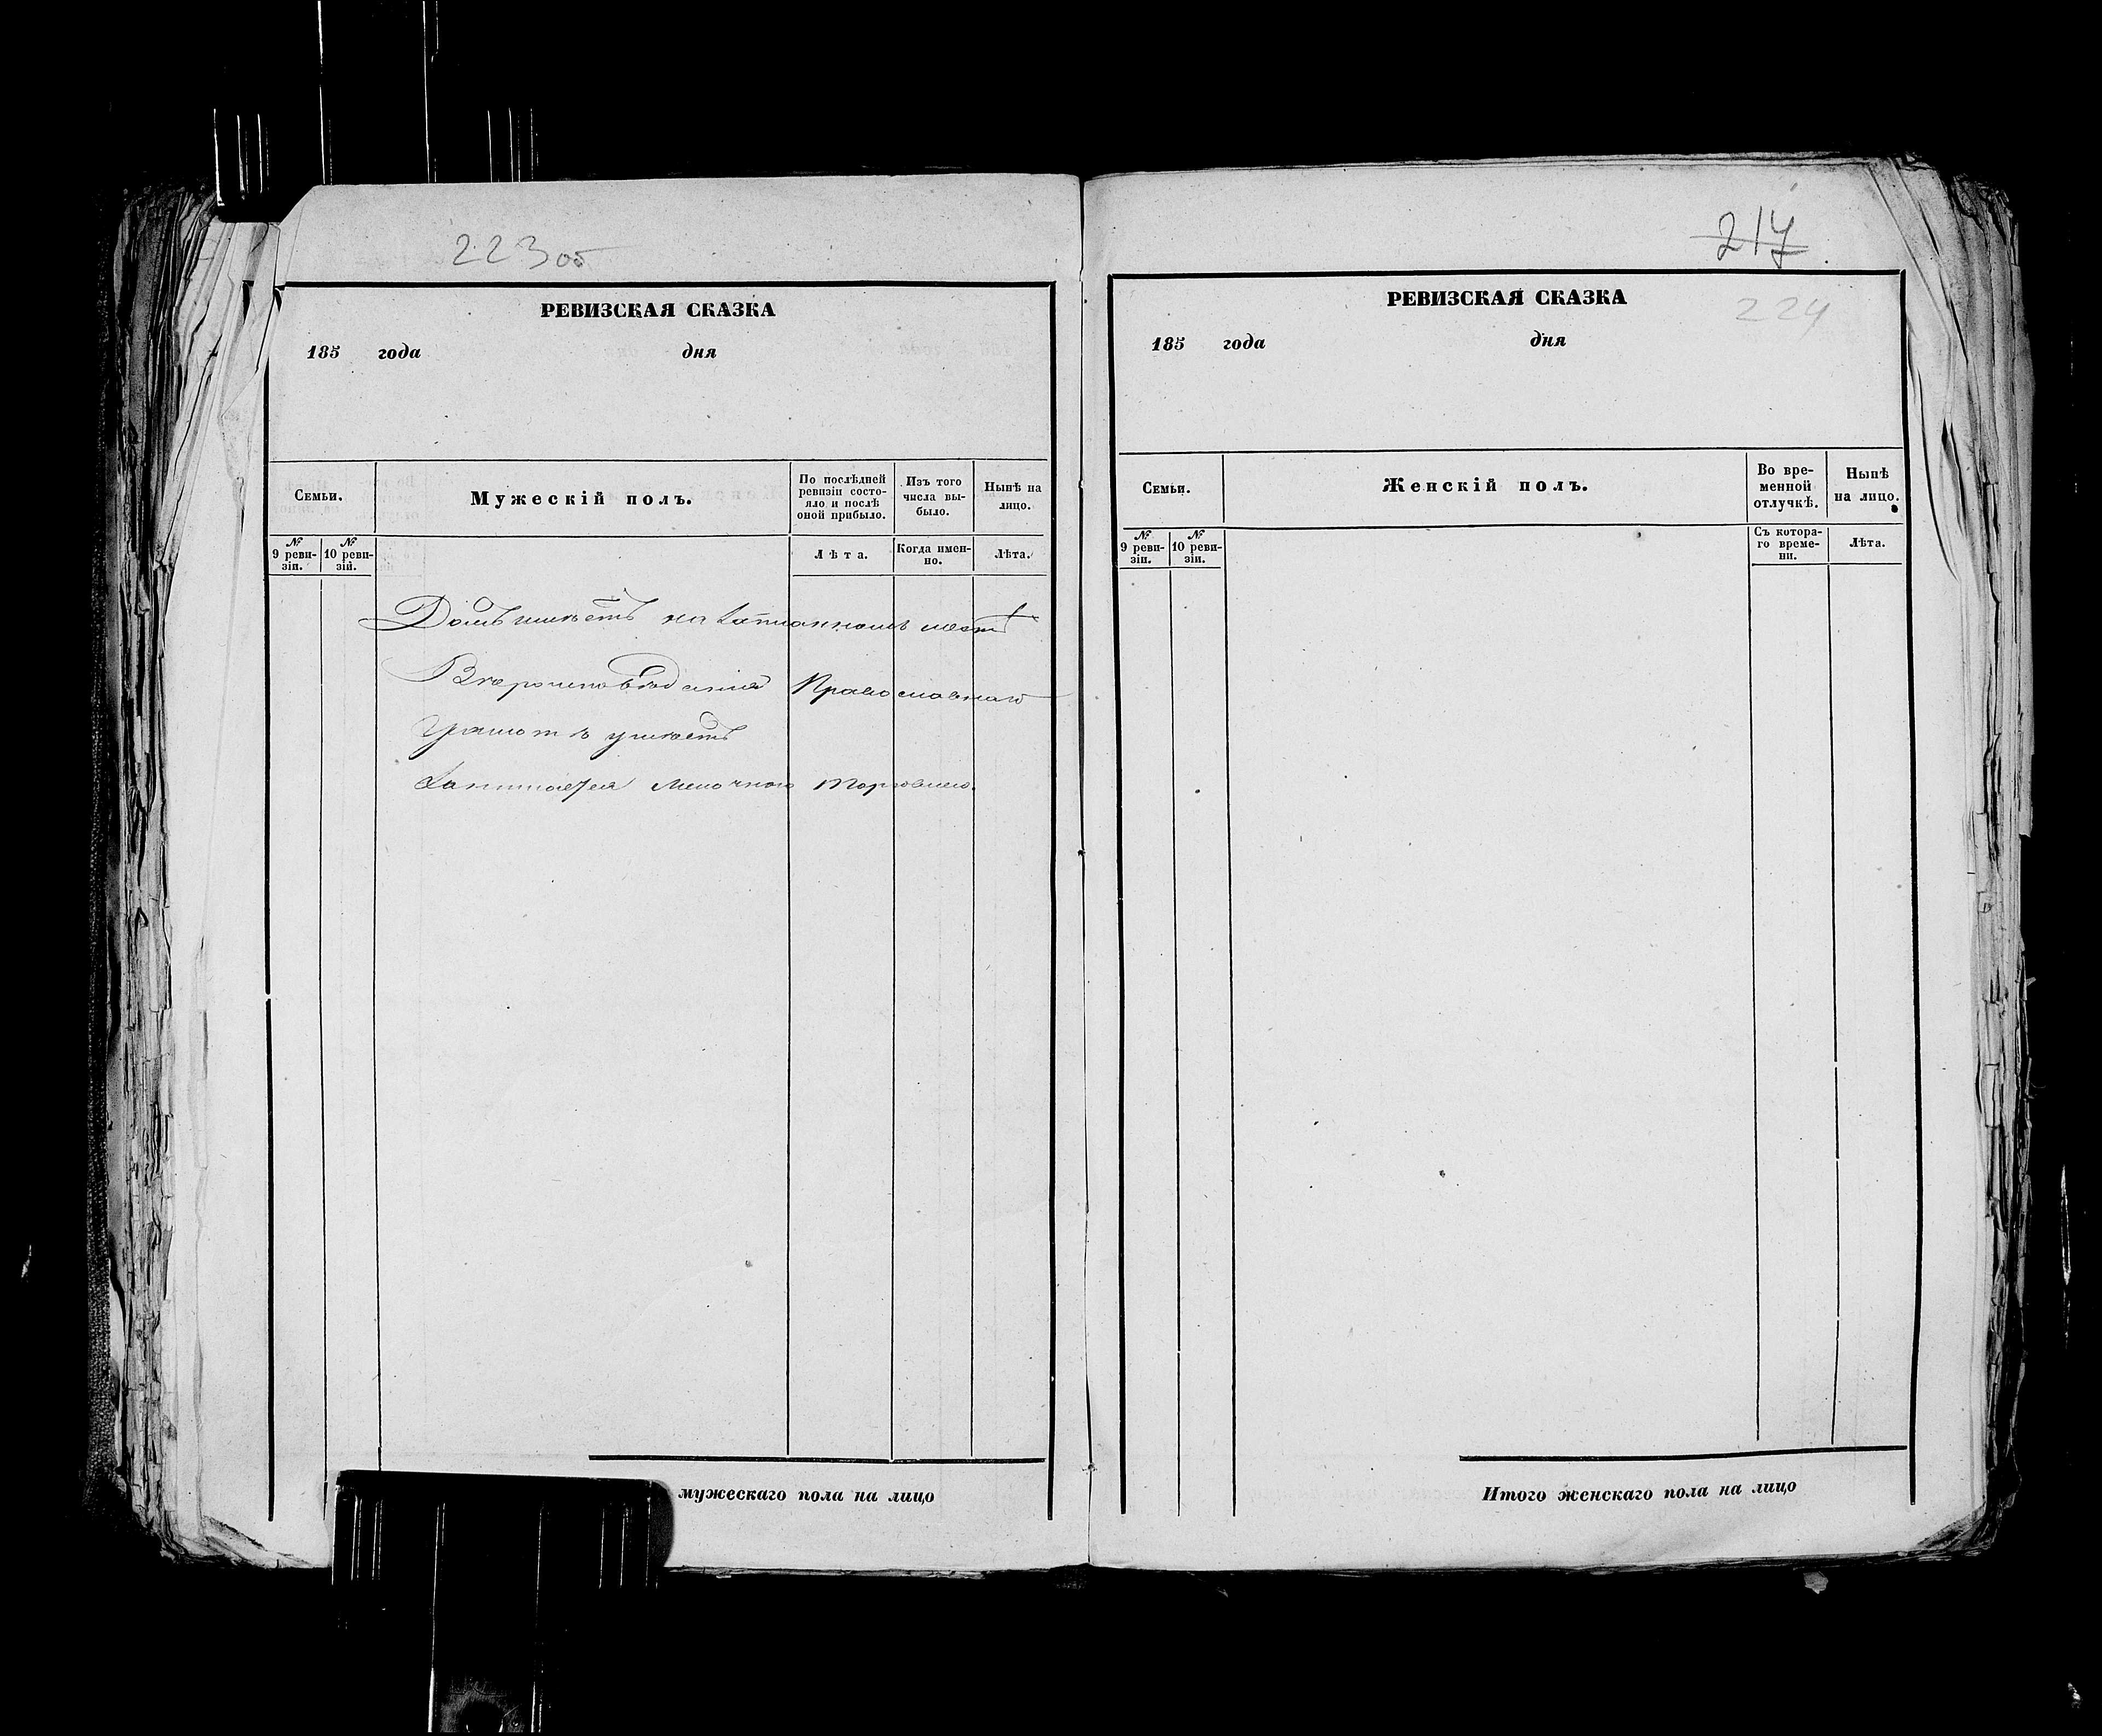 223об
РЕВИЗСКАЯ СКАЗКА
185 года дня
Семьи.
Мужескій полъ.
По послѣдней ревизіи состо-
яло и послѣ
оной прибыло.
Изъ того
числа вы-
было.
Нынѣ на
лицо.
№
9 реви-
зіи.
№
10 реви-
зій.
Лѣта.
Когда имен-
но.
Лѣта.
Домъ имѣетъ на мѣстѣ
Вѣроисповѣданія Православнаго
Грамотѣ умѣетъ
Занимается мелочною торговлею.
мужескаго пола на лицо
217
224
РЕВИЗСКАЯ СКАЗКА
185 года дня
Семьи.
Женскій полъ.
Во вре-
менной
отлучкѣ.
Нынѣ
на лицо.
№
9 реви-
зіи.
№
10 реви-
зіи.
Съ котора-
го време-
ни.
Лѣта.
Итого женскаго пола на лицо